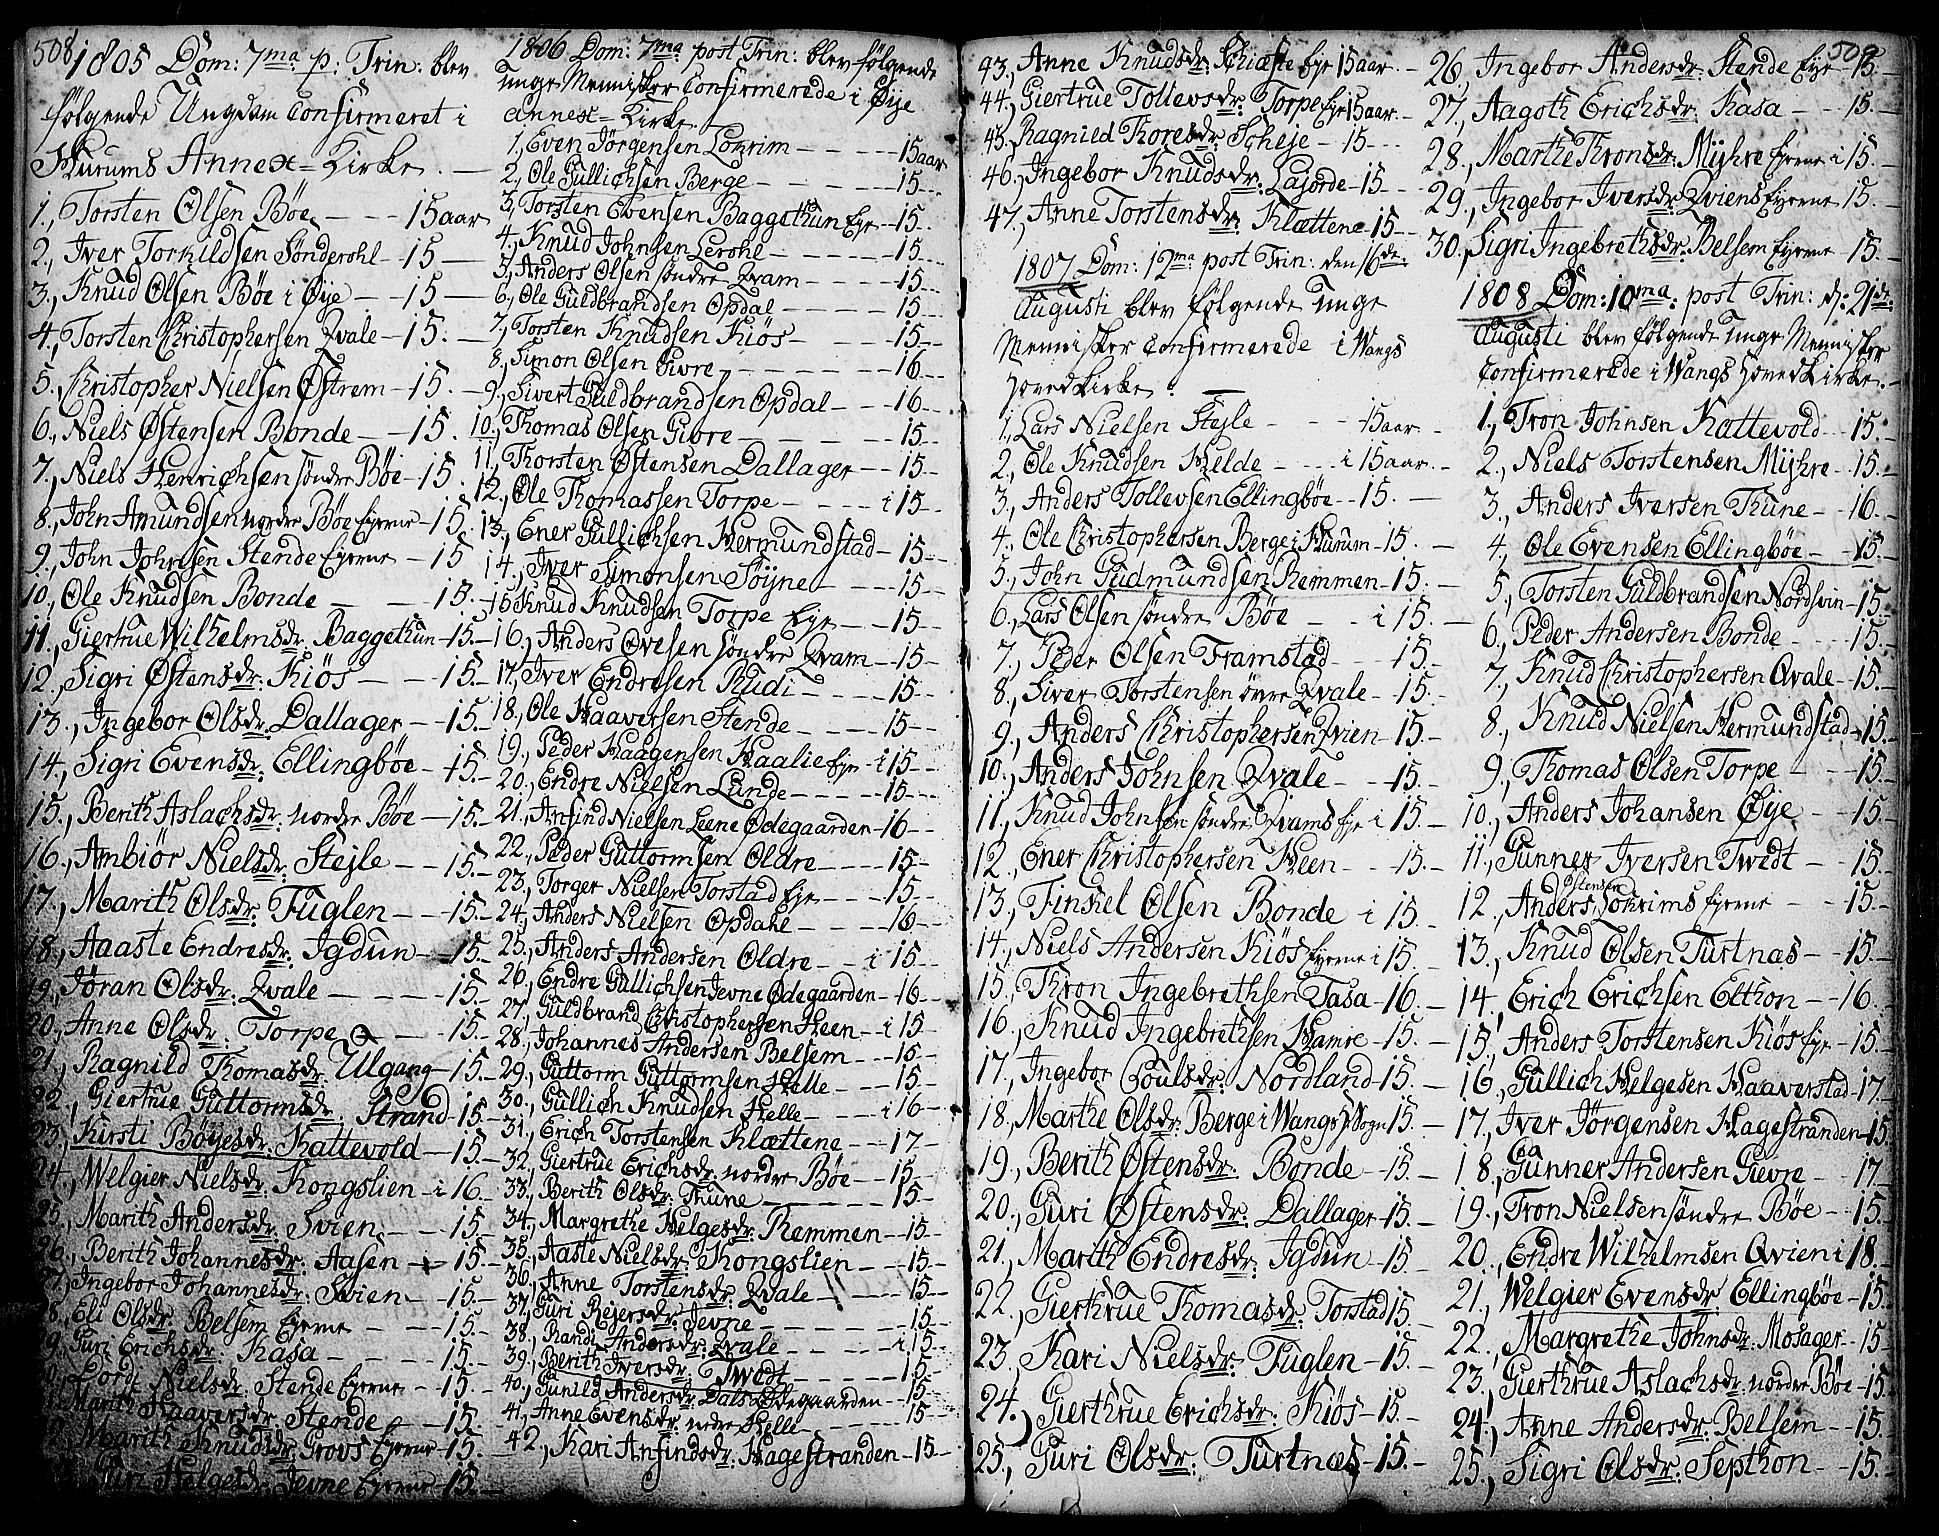 508
1805 Dom: 7ma p: Trin: blev
følgende Ungdom Confirmeret i
Hurums Annex-Kirke.
1., Torsten Olsen Bøe - - - 15 aar
2., Iver Torkildsen Sønderohl - 15 -
3., Knud Olsen Bøe i Øye - - 15 -
4., Torsten Christophersen Qvale - 15. -
5. Christopher Nielsen Østrem - 15. -
6., Niels Østensen Bonde - - 15.
7., Niels Henrichsen søndre Bøe - 15.
8., John Amundsen nordre Bøe Eyerne - 15.
9., John Johnsen Stende Eyerne - 15
10., Ole Knudsen Bonde - - 15. -
11., Giertrue Wilhelmsdr. Baggethun - 15. -
12., Sigri Østensdr: Kiøs - - 15. -
13., Ingebor Olsdr: Dallager - - 15. -
14., Sigri Evensdr: Ellingbøe - 15. -
15., Berith Aslachsdr: nordre Bøe - 15. -
16., Ambiør Nielsdr: Stejle - - 15. -
17., Marith Olsdr: Fuglen - - 15. -
18., Aaaste Endresdr: Igdun - 15. -
19., Jøran Olsdr: Qvale - - - 15. -
20., Anne Olsdr: Torpe - - 15. -
21., Ragnild Thomasdr: Ulgang - 15. -
22., Giertrue Guttormsdr: Strand - 15. -
23., Kirsti Bøyesdr: Kattevold - 15. -
24., Welgier Nielsdr: Kongslien - i 16. -
25., Marith Andersdr: Svien - - 15. -
26., Berith Johannesdr: Aasen - 15. -
27., Ingebor Johannesdr: Svien - 15. -
8., Eli Olsdr: Belsem Eyerne - - 15. -
9., Guri Erichsdr: Kasa - - - 15. -
Lordz Nielsdr: Stende Eyerne - 15. -
Marith Haaversdr: Stende - - 15. -
Marith Knudsdr: Grovs Eyerne - 15. -
Guri Helgesdr: Jevne Eyerne - 15. -
1806 Dom: 7ma post Trin: blev følgende
unge Mennisker Confirmerede i Øye
Annex-Kirke.
1., Even Jørgensen Lokrim - - - - 15 aar
2., Ole Gullichsen Berge - - - - 15 - -
3., Torsten Evensen Baggethun Eye - 15 - -
4., Knud Johnsen Lerohl - - - - 15 - -
5., Anders Olsen søndre Qvam - - - 15 - -
6., Ole Guldbrandsen Opdal - - - 15 - -
7., Torsten Knudsen Kiøs - - - 15 - -
8., Simon Olsen Givre - - - - 16 - -
9., Sivert Guldbrandsen Opdal - - 16 - -
10., Thomas Olsen Givre - - - 15 - -
11., Thorsten Østensen Dallager - - 15 - -
12., Ole Thomassen Torpe - - - i 15 - -
13., Ener Gullichsen Hermundstad - 15 - -
14., Iver Simonsen Søyne - - - 15 - -
15 Knud Knudsen Torpe Eye - - 15 - -
16., Anders Ovesen søndre Qvam - 15 -
17., Iver Endresen Rudi - - - 15 - -
18., Ole Haaversen Stende - - - 15 - -
19., Peder Haagensen Haalie Eye - i 15 - -
20., Endre Nielsen Lunde - - - 15 - -
21., Anfind Nielsen Leene Ødegaarden - 16 - -
22., Peder Guttormsen Oldre - - - 15 - -
23., Torger Nielsen Torstad Eye - - 15 - -
24., Anders Nielsen Opdahl - - - 16 - -
25., Anders Andersen Oldre - - i 15 - -
26., Endre Gullichsen Jevne Ødegaarden - 16 - -
27., Guldbrand Christophersen Heen - i 15 - -
28., Johannes Andersen Belsem - - 15 - -
29., Guttorm Guttormsen Helle - - 15 - -
30., Gullich Knudsen Helle - - - i 16 - -
31., Erich Torstensen Klættene - - 17 - -
32., Giertrue Erichsdr: nordre Bøe - 15 - -
33., Berith Olsdr: Thune - - - 15 - -
34., Margrethe Helgesdr: Remmen - 15 - -
35., Aaste Nielsdr: Kongslien - - 15 - -
36., Anne Torstensdr: Qvale - - - 15 - -
37., Guri Rejersdr: Jevne - - - 15 - -
38., Randi Andersdr: Qvale - - - i 15 - -
39., Berith Iversdr: Twedt - - - 15 - -
40., Gunild Andersdr: Dals Ødegaarden - - 15 - -
41., Anne Evensdr: nedre Helle - - 15 - -
42., Kari Anfindsdr: Hagestranden - 15 - -
43., Anne Knudsdr: Schiæste Eye 15 aar. -
44., Giertrue Tollevsdr: Torpe Eye 15 aar. -
45. Ragnild Thoresdr: Scheje - 15 - - -
46., Ingebor Knudsdr: Lajorde - 15 - -
47., Anne Torstensdr: Klættene - 15 - -
1807 Dom: 12ma post Trin: den 16de
Augusti blev følgende unge
Mennisker Confirmerede i Wangs
HovedKirke.
1., Lars Nielsen Stejle - - - 15 aar. -
2., Ole Knudsen Helde - - - i 15 aar. -
3., Anders Tollevsen Ellingbøe - - 15. -
4., Ole Christophersen Berge i Hurum - 15. -
5., John Gudmundsen Remmen - 15. -
6., Lars Olsen søndre Bøe - - i 15. -
7., Peder Olsen Framstad - - 15. -
8., Siver Torstensen øvre Qvale - 15. -
9., Anders Christophersen Qvien - 15. -
10., Anders Johnsen Qvale - - 15. -
11., Knud Johnsen søndre Qvams Eye i 15. -
12., Ener Christophersen Heen - - 15. -
13., Finkel Olsen Bonde i 15. -
14., Niels Andersen Kiøs Eyerne i 15. -
15., Thron Ingebrethsen Tasa - 16. -
16., Knud Ingebrethsen Hamre - 15. -
17., Ingebor Poulsdr: Nordland 15. -
18., Marthe Olsdr: Berge i Wangs Sogn 15. -
19., Berith Østensdr: Bonde - 15. -
20., Guri Østensdr: Dallager - 15. -
21., Marith Endresdr: Igdun - 15. -
22., Gierthrue Thomasdr: Torstad 15. -
23., Kari Nielsdr: Fuglen - 15. -
24., Gierthrue Erichsdr: Kiøs - 15. -
25., Guri Olsdr: Turtnæs - 15. -
509
26., Ingebor Andersdr: Stende Eye - 15 -
27., Aagoth Erichsdr: Kasa - - 15. -
28., Marthe Thronsdr: Mÿhre Eyerne i 15. -
29., Ingebor Iversdr: Qviens Eyerne - 15. -
30., Sigri Ingebrethsdr: Belsem Eyerne - 15. -
1808 Dom: 10ma: post Trin: d: 21de
Augusti blev følgende unge Mennisker
Confirmerede i Wangs HovedKirke. -
1., Tron Johnsen Kattevold - - 15. -
2., Niels Torstensen Mÿhre - 15. -
3., Anders Iversen Thune - - 16. -
4., Ole Evensen Ellingbøe - - 15. -
5., Torsten Guldbrandsen Nordsvin - 15. -
6., Peder Andersen Bonde - - - 15. -
7., Knud Christophersen Qvale - 15. -
8., Knud Nielsen Hermundstad - 15. -
9., Thomas Olsen Torpe - - - 15. -
10., Anders Johansen Øÿe - - 15. -
11., Gunner Iversen Twedt - - 15. -
12., Anders Østensen Lokrims Eyerne - - 15. -
13., Knud Olsen Turtnæs - - 15. -
14., Erich Erichsen Elthon - - 16. -
15., Anders Torstensen Kiøs Eye - 15. -
16., Gullich Helgesen Haaverstad - 17. -
17., Iver Jørgensen Hagestranden - 15. -
18., Gunner Andersen Gievre - 17. -
19., Tron Nielsen søndre Bøe - 15. -
20., Endre Wilhelmsen Qvien i 18. -
21., Welgier Evensdr Ellingbøe - 15. -
22., Margrethe Johnsdr: Mosager - 15. -
23., Gierthrue Aslachsdr: nordre Bøe - 15. -
24., Anne Andersdr: Belsem - 15. -
25., Sigri Olsdr: Septhon - - 15. -